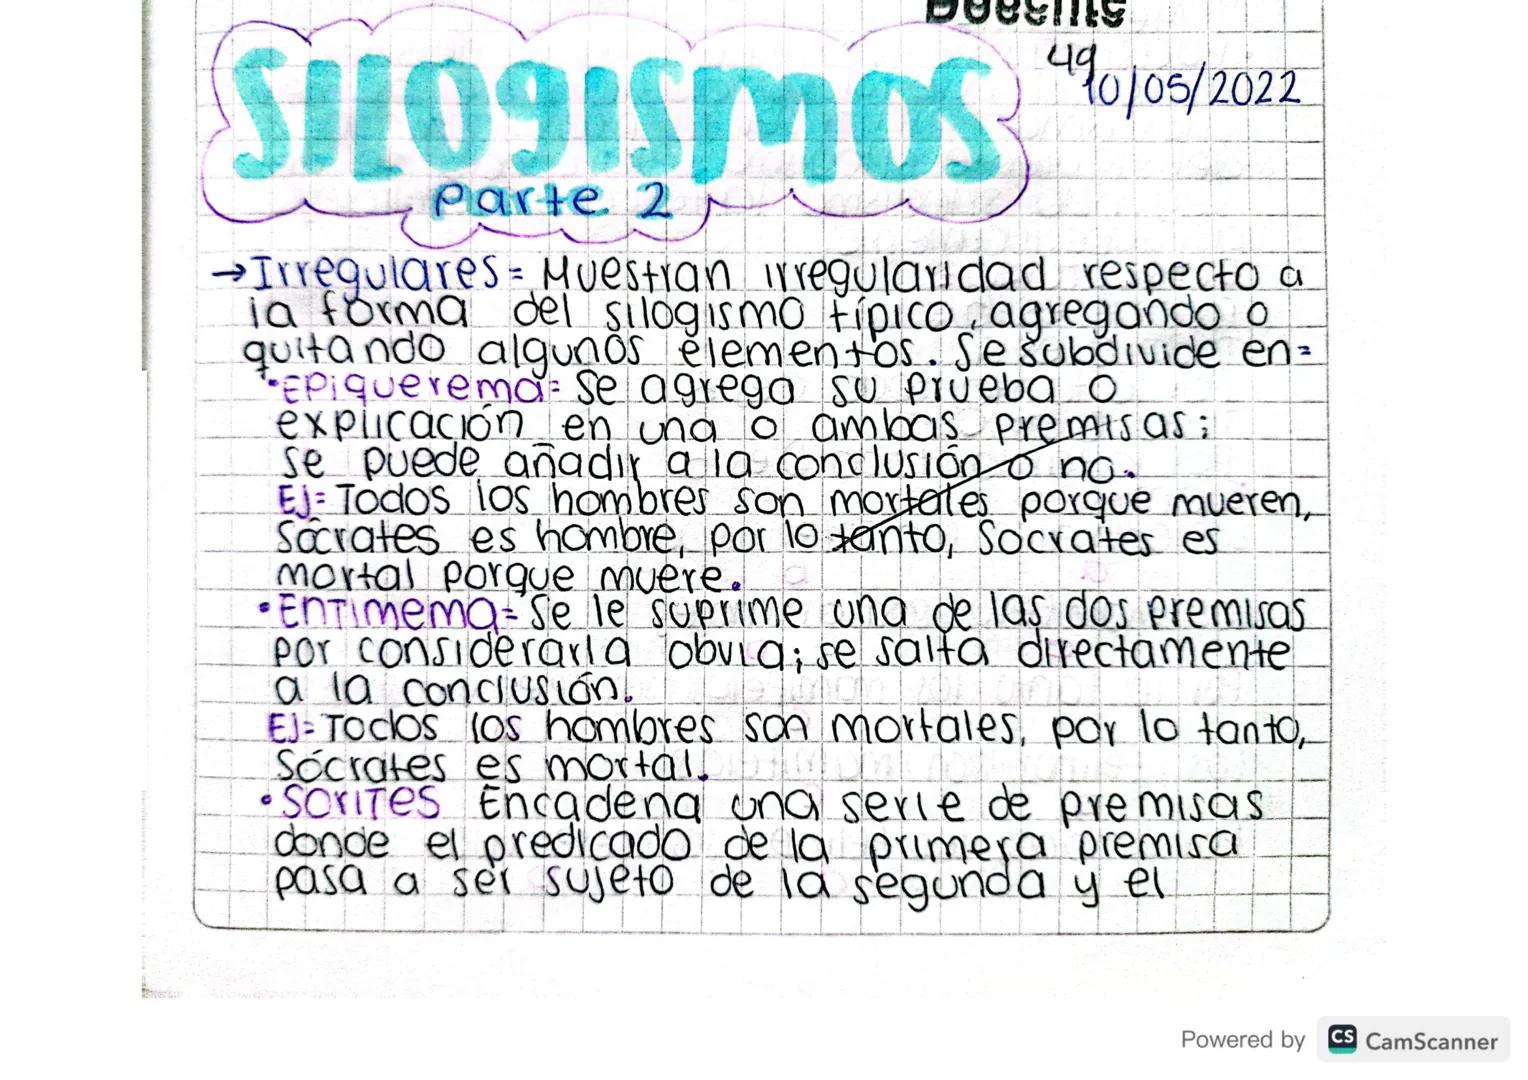 Docente
49
10/05/2022
SILOGISMOS
Parte 2
→Irregulares= Muestran irregularidad respecto a
la forma del silogismo típico, agregando o
quitando algunos elementos. Se subdivide en=
•Epiquerema= Se agrega su prueba o
explicación en una o ambas premisas;
se puede añadir a la conclusión o no.
Ej= Todos los hombres son mortales porque mueren,
Sócrates es hombre, por lo tanto, Socrates es
mortal porque muere.
•Entimema= Se le suprime una de las dos premisas
por considerarla obvia; se salta directamente
a la conclusión.
Ej= Todos los hombres son mortales, por lo tanto,
Sócrates es mortal.
•Sorites Encadena una serie de premisas
donde el predicado de la primera premisa
pasa a ser sujeto de la segunda y el
Powered by CS CamScanner